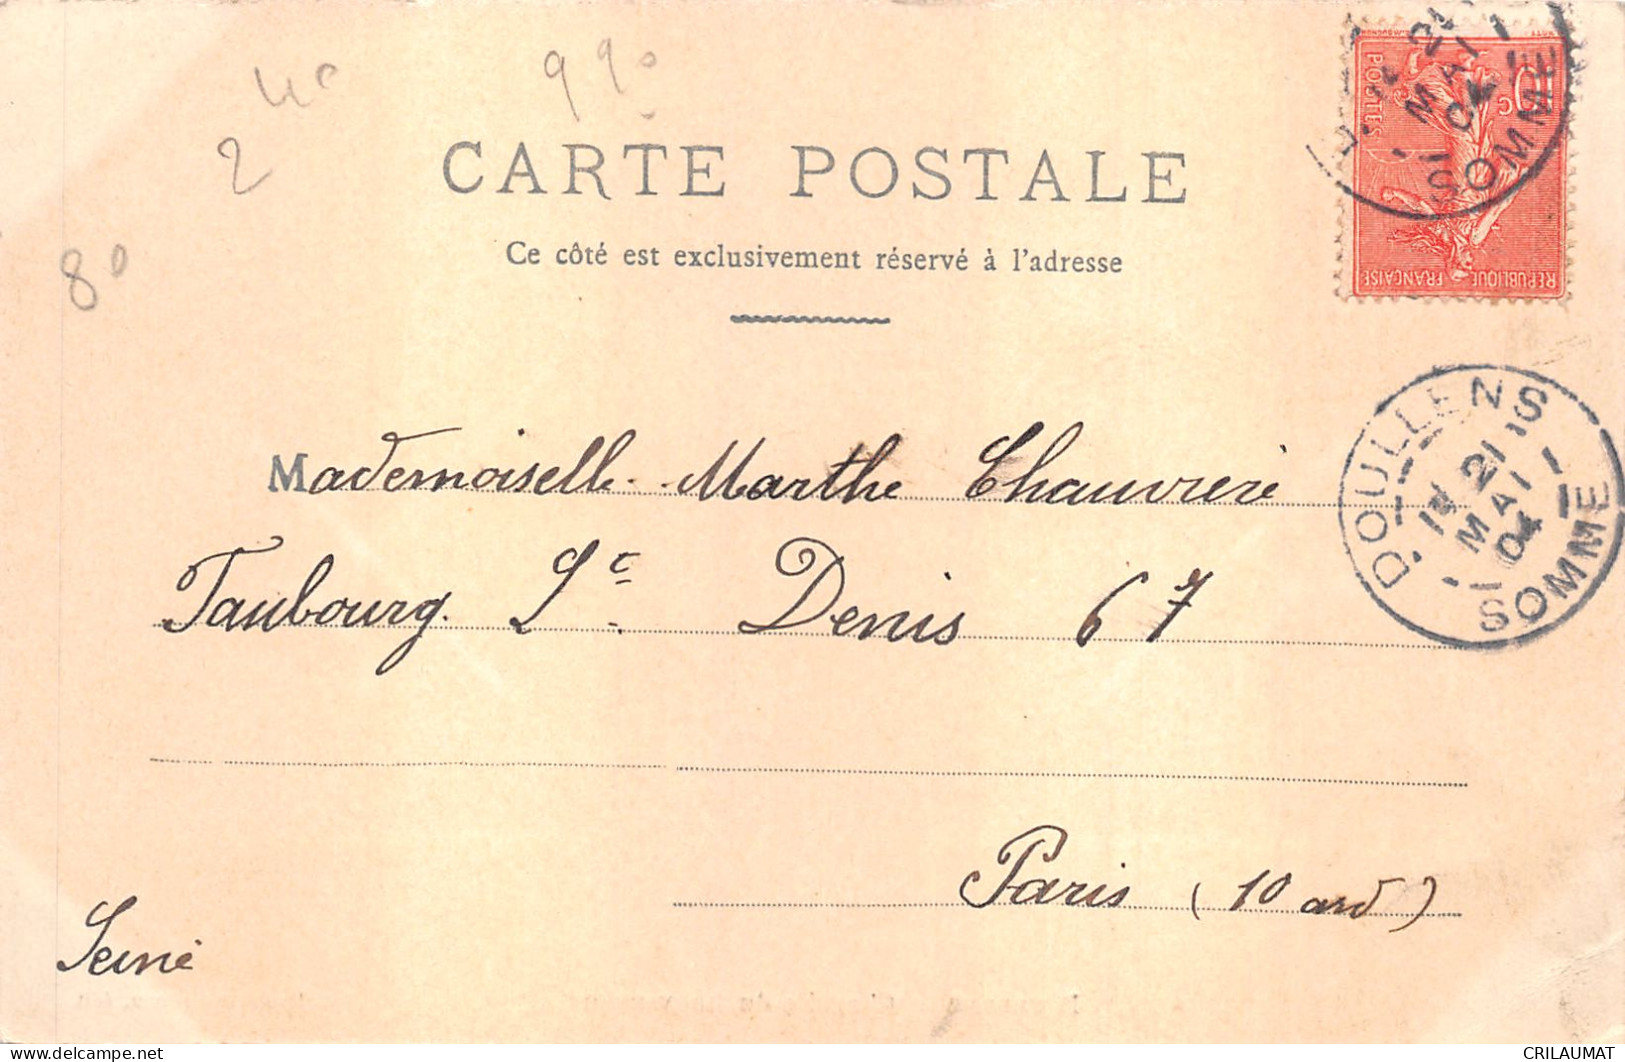 2 40
99 0
80
CARTE POSTALE
Ce côté est exclusivement réservé à l'adresse
10 c
POSTES
REPUBLIQUE FRANÇAISE
21
MAI
04
SOMME
DOULLENS
21
MAI
04
SOMME
Mademoiselle Marthe Chauvière
Faubourg St Denis 67
Paris (10 ard)
Seine
CRILAUMAT